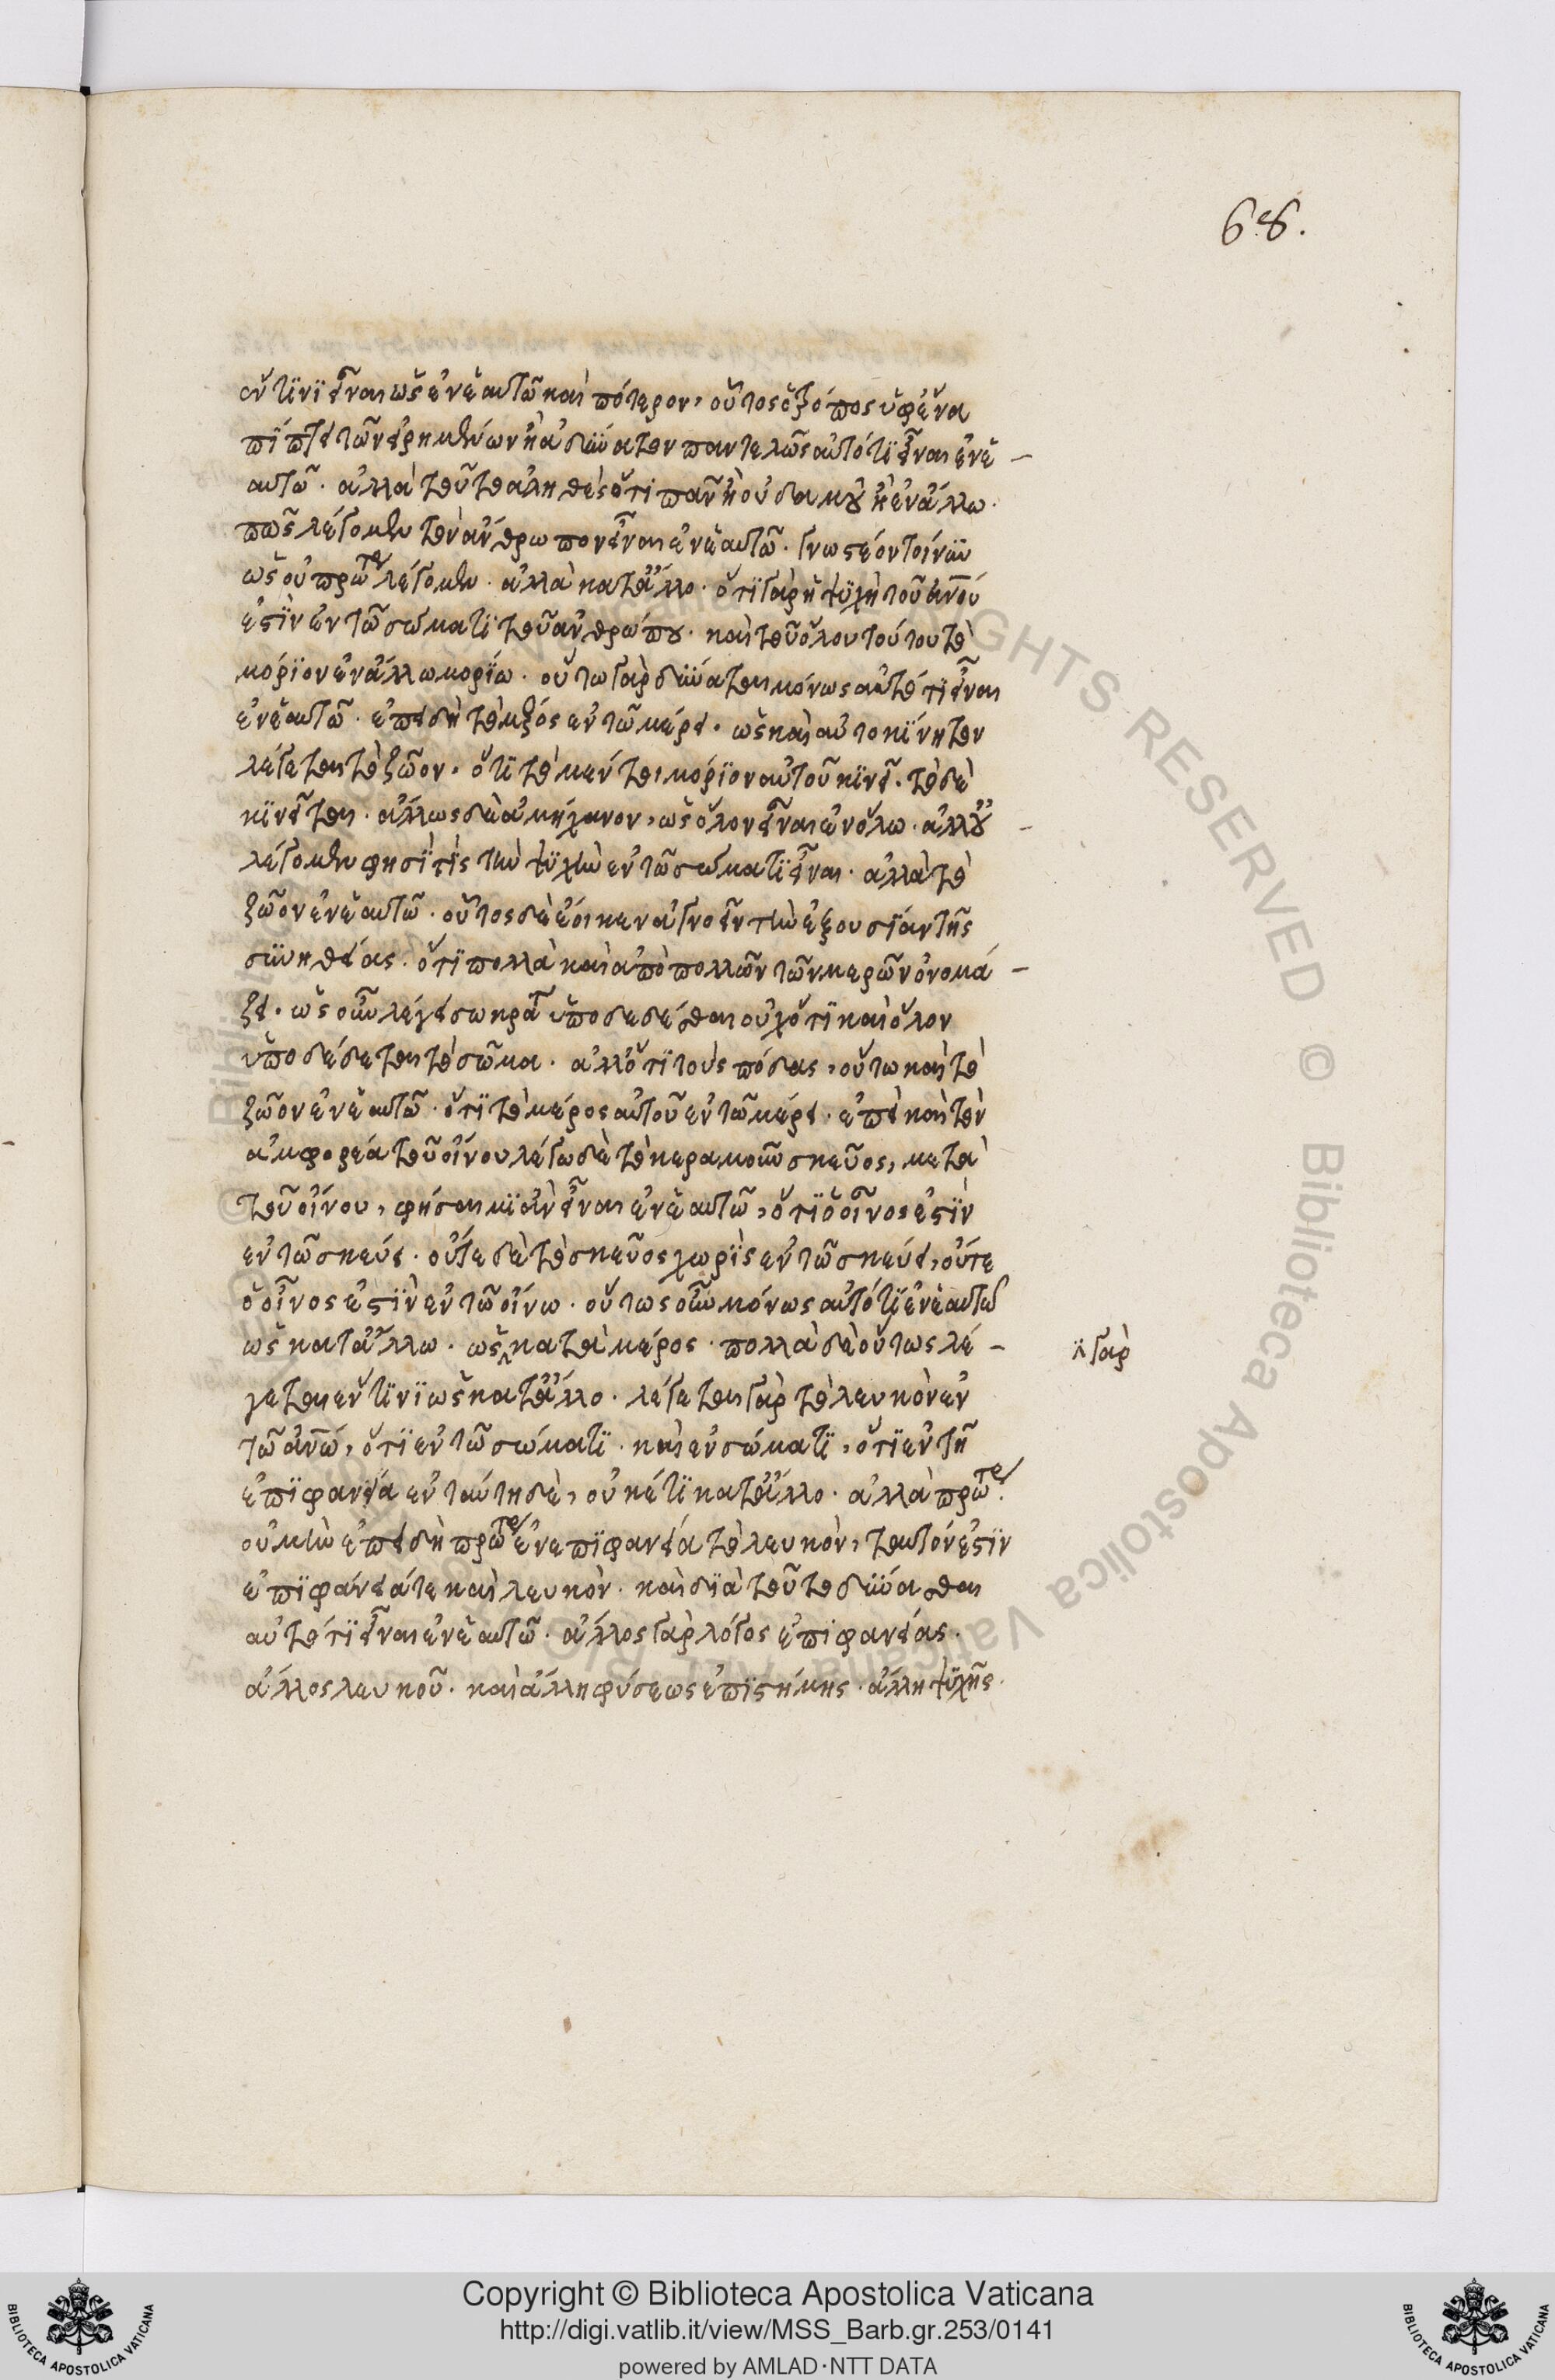 68.
ἔν τινι εἶναι ὡς ἐν ἑαυτῶ καὶ πότερον, οὗτος ὁ τρόπος ὑφ' ἕνα
πίπτει τῶν εἰρημένων ἢ ἀδύνατον παντελῶς αὐτό τι εἶναι ἐν ἑ-
αυτῶ. ἀλλὰ τοῦτο ἀληθὲς ὅτι πᾶν ἢ οὐδαμοῦ ἢ ἐν ἄλλω.
πῶς λέγομεν τὸν ἄνθρωπον εἶναι ἐν ἑαυτῶ. γνωστέον τοίνυν
ὡς οὐ πρώτως λέγομεν. ἀλλὰ κατ' ἄλλο. ὅτι γὰρ ἡ ψυχὴ τοῦ ἀνου
ἐστὶν ἐν τῶ σώματι τοῦ ἀνθρώπου. καὶ τοῦ ὅλου τούτου τὸ
μόριον ἐν ἄλλω μορίω. οὕτω γὰρ δύναται μόνως αὐτό τι εἶναι
ἐν ἑαυτῶ. ἐπειδὴ τὸ μέρος ἐν τῶ μέρει. ὡς καὶ αὐτοκίνητον
λέγεται τὸ ζῶον. ὅτι τὸ μέν τι μόριον αὐτοῦ κινεῖ. τὸ δὲ
κινεῖται. ἄλλως δὲ ἀμήχανον, ὡς ὅλον εἶναι ἐν ὅλω. ἀλλ' οὐ
λέγομεν φησί τις τὴν ψυχὴν ἐν τῶ σώματι εἶναι. ἀλλὰ τὸ
ζῶον ἐν ἑαυτῶ. οὗτος δὲ ἔοικεν ἀγνοεῖν τὴν ἐξουσίαν τῆς
συνηθείας. ὅτι πολλὰ καὶ ἀπὸ πολλῶν τῶν μερῶν ὀνομά-
ζει. ὡς οὖν λέγει σωκράτ ὑποδεδέσθαι οὐχ ὅτι καὶ ὅλον
ὑποδέδεται τὸ σῶμα. ἀλλ' ὅτι τοὺς πόδας, οὕτω καὶ τὸ
ζῶον ἐν ἑαυτῶ. ὅτι τὸ μέρος αὐτοῦ ἐν τῶ μέρει. ἐπεὶ καὶ τὸν
ἀμφορέα τοῦ οἴνου λέγω δὲ τὸ κεραμοῦν σκεῦος, μετὰ
τοῦ οἴνου, φήσαιμι ἂν εἶναι ἐν ἑαυτῶ, ὅτι ὁ οἶνος ἐστὶν
ἐν τῶ σκεύει. οὔτε δὲ τὸ σκεῦος χωρὶς ἐν τῶ σκεύει, οὔτε
ὁ οἶνος ἐστὶν ἐν τῶ οἴνω. οὕτως οὖν μόνως αὐτό τι ἐν ἑαυτῶ
ὡς κατ' ἄλλω. ὡς κατὰ μέρος. πολλὰ δὲ οὕτως λέ-
γὰρ
γεται ἔν τινι ὡς κατ' ἄλλο. λέγεται γὰρ τὸ λευκὸν ἐν
τῶ ἀνω, ὅτι ἐν τῶ σώματι. καὶ ἐν σώματι, ὅτι ἐν τῆ
ἐπιφανεία ἐν ταύτη δὲ, οὐκέτι κατ' ἄλλο. ἀλλὰ πρώτως.
οὐ μὴν ἐπειδὴ πρώτως ἐν ἐπιφανεία τὸ λευκὸν, ταυτόν ἐστιν
ἐπιφάνειά τε καὶ λευκὸν. καὶ διὰ τοῦτο δύνασθαι
αὐτό τι εἶναι ἐν ἑαυτῶ. ἄλλος γὰρ λόγος ἐπιφανείας.
ἄλλος λευκοῦ. καὶ ἄλλη φύσεως ἐπιστήμης. ἄλλη ψυχῆς.
Copyright © Biblioteca Apostolica Vaticana
http://digi.vatlib.it/view/MSS_Barb.gr.253/0141
powered by AMLAD·NTT DATA